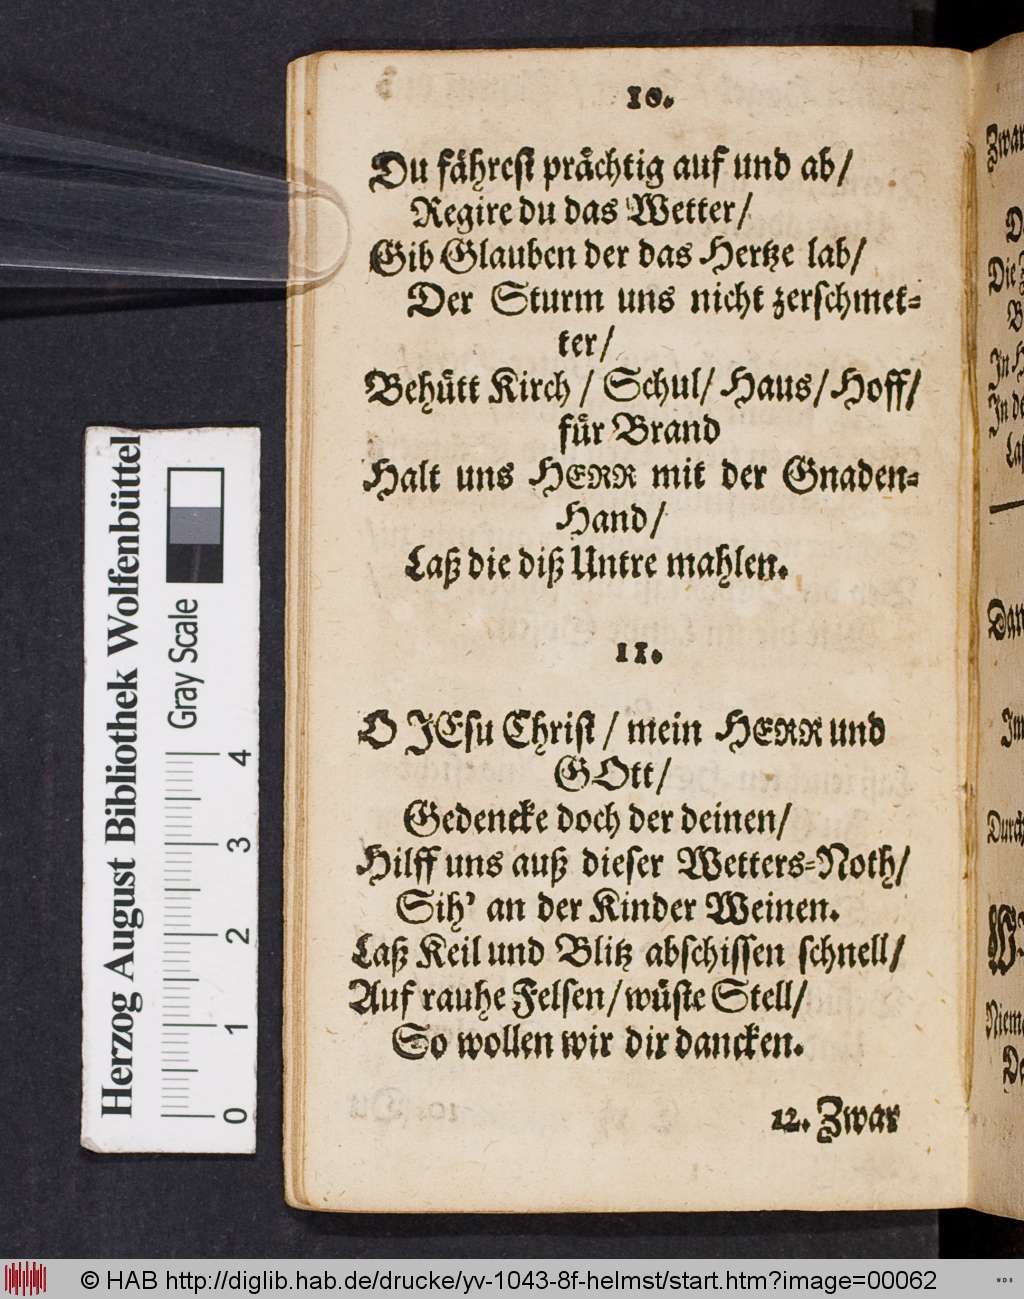 10.
Du fährest prächtig auf und ab/
Regire du das Wetter/
Gib Glauben der das Hertze lab/
Der Sturm uns nicht zerschmet-
ter/
Behütt Kirch / Schul/ Haus/ Hoff/
für Brand
Halt uns HERR mit der Gnaden-
Hand/
Laß die diß Untre mahlen.
11.
O JEsu Christ / mein HERR und
GOtt/
Gedencke doch der deinen/
Hilff uns auß dieser Wetters-Noth/
Sih' an der Kinder Weinen.
Laß Keil und Blitz abschissen schnell/
Auf rauhe Felsen/ wüste Stell/
So wollen wir dir dancken.
12. Zwar
Herzog August Bibliothek Wolfenbüttel
Gray Scale
0 1 2 3 4
© HAB http://diglib.hab.de/drucke/yv-1043-8f-helmst/start.htm?image=00062